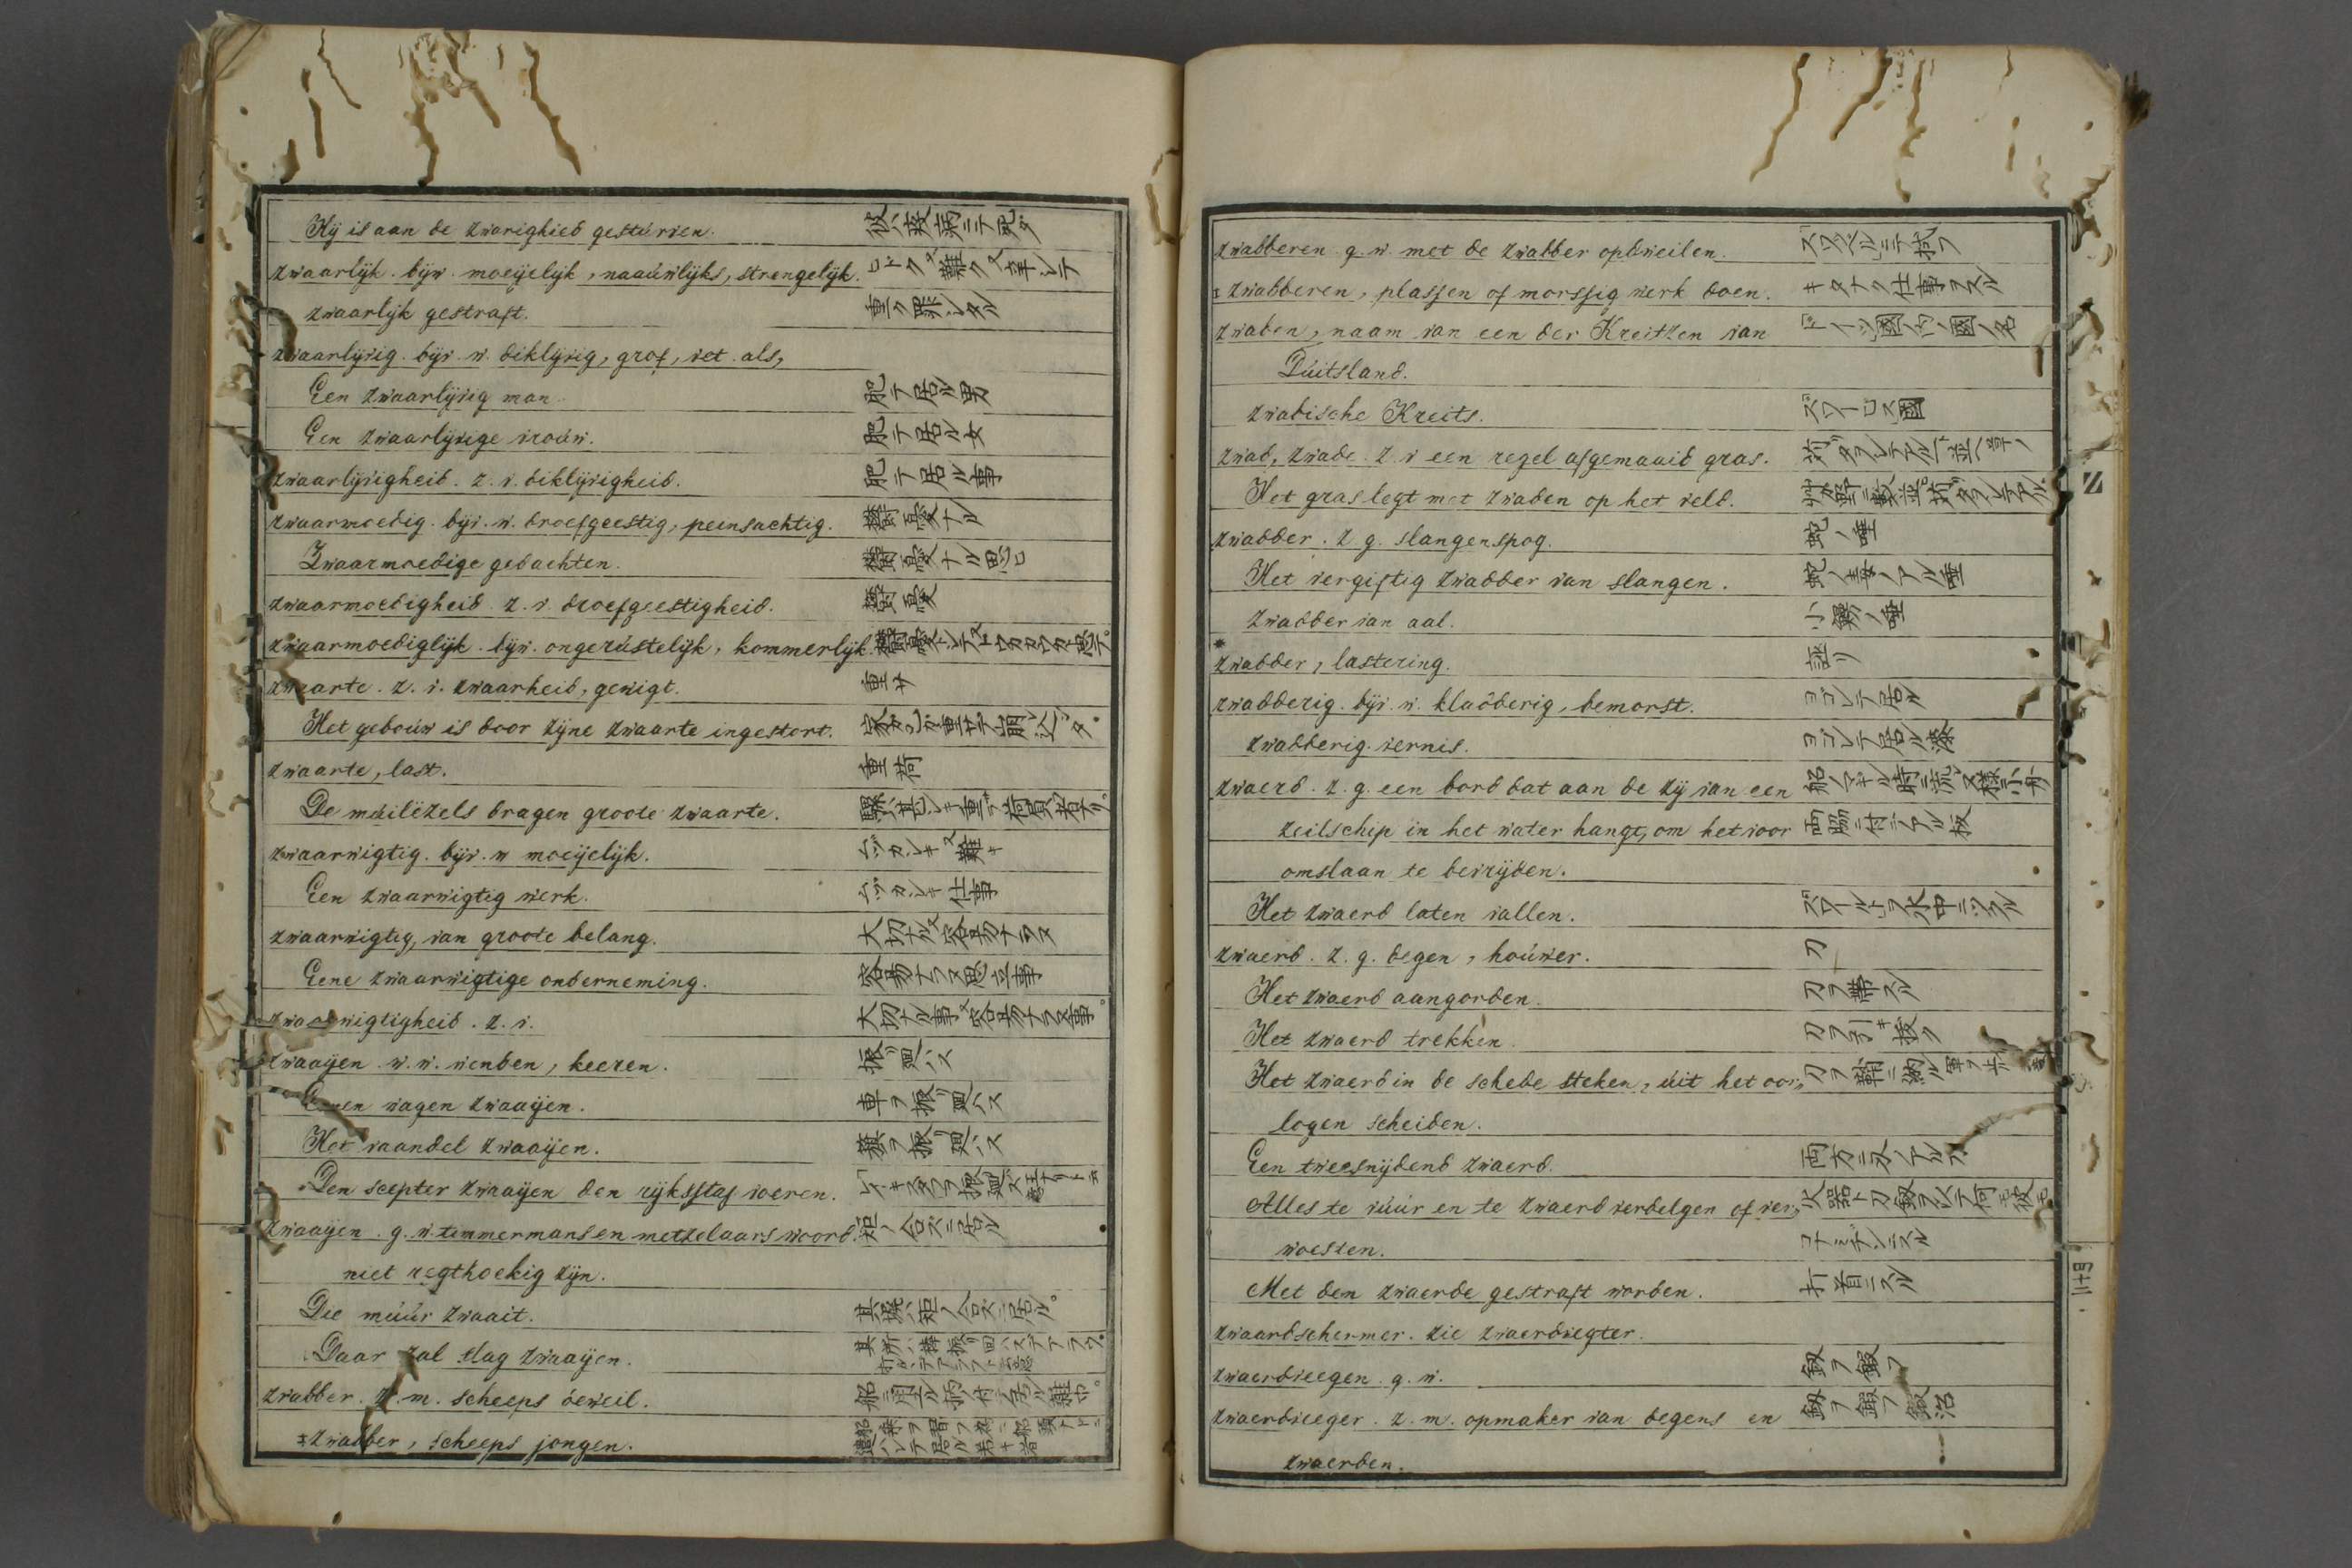 Hÿ is aan de zwarighied gesturven. 彼ハ疫病ニテ死タ
zwaarlÿk. bÿw. moeÿelÿk, naauwlÿks, strengelÿk. ヒドク又難ク又辛シテ
zwaarlÿk gestraft. 重ク罪シタル
zwaarlÿvig. bÿv. w. diklÿvig, grof, vet. als,
Een zwaarlÿvig man. 肥テ居ル男
Een zwaarlÿvige vrouw. 肥テ居ル女
zwaarlÿvigheid. z. v. diklÿvigheid. 肥テ居ル事
zwaarmoedig. bÿv. w. droefgeestig, peinsachtig. 欝憂ナル
Zwaarmoedige gedachten. 欝憂ナル思ヒ
zwaarmoedigheid. z. v. droefgeestigheid. 欝憂
zwaarmoediglÿk. bÿw. ongerustelÿk, kommerlÿk.
zwaarte. z. v. zwaarheid, gewigt. 重サ
Het gebouw is door zÿne zwaarte ingestort.
zwaarte, last. 重荷
De muilëzels dragen groote zwaarte.
zwaarwigtig. bÿv. w moeÿelÿk. ムツカシキ又難キ
Een zwaarwigtig werk. ムツカシキ仕事
zwaarwigtig, van groote belang. 大切ナル又容易ナラヌ
Eene zwaarwigtige onderneming. 容易ナラヌ思立事
zwaarwigtigheid. z. v. 大切ナル事又容易ナラヌ事。
zwaaÿen. w. w. wenden, keeren. 振リ廻ハス
Eenen wagen zwaaÿen. 車ヲ振リ廻ハス
Het vaandel zwaaÿen. 籏ヲ振リ廻ハス
Den scepter zwaaÿen den rÿksstaf voeren.
zwaaÿen. g. w. timmermans en metzelaars woord. 矩ノ合ズニ居ル
niet regthoekig zÿn.
Die muur zwaait. 其塀ハ矩ノ合ズニ居ル。
Daar zal slag zwaaÿen.
zwabber. z. m. scheeps deweil.
‡ zwabber, scheeps jongen.
zwabberen. g. w. met de zwabber opdweilen. 「ズワブベル」ニテ拭フ
‡ zwabberen, plassen of morssig werk doen. キタナク仕事ヲスル
zwaben, naam van een der Kreitzen van 「ドーイツ」國ノ内ノ國ノ名
Duitsland.
zwabische Kreits. 「ズワービス」國
zwad, zwade. z. v een regel afgemaaid gras.
Het gras legt met zwaden op het veld.
zwadder. z g. slangenspog. 蛇ノ唾
Het vergiftig zwadder van slangen. 蛇ノ毒ノアル唾
zwadder van aal.
zwadder, lastering. 誣リ
zwadderig. bÿv. w. kladderig, bemorst. ヨゴレテ居ル
zwadderig vernis. ヨゴレテ居ル漆
zwaerd. z. g. een bord dat aan de zÿ van een
zeilschip in het water hangt, om het voor 両脇ニ付テアル板
omslaan te bevrÿden.
Het zwaerd laten vallen.
zwaerd. z. g. degen, houwer. 刀
Het zwaerd aangorden. 刀ヲ帯スル
Het zwaerd trekken. 刀ヲ引キ抜ク
Het zwaerd in de schede steken, uit het oor,, 刀ヲ鞘ニ納ル
logen scheiden.
Een tweesnÿdend zwaerd. 両方ニ刃ノアル刀
Alles te vuur en te zwaerd verdelgen of ver,,
woesten. コナミヂンニスル
Met den zwaerde gestraft worden. 打首ニスル
zwaardschermer. zie zwaerdvegter.
zwaerdveegen. g. w. 釼ヲ鍛フ
zwaerdveeger. z. m. opmaker van degens en 釼ヲ鍛フ鍛冶
zwaerden.
Z